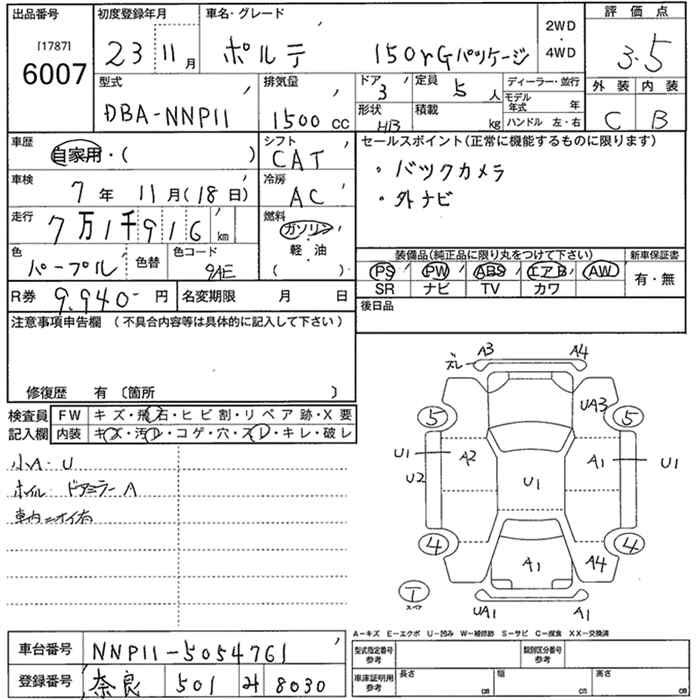 出品番号 初度登録年月 車名・グレード 2WD・4WD 評価点
[1787] 6007 23 11月 ポルテ 150r Gパッケージ 3.5
型式 排気量 ドア 3 定員 5 人 ディーラー・並行 外装 内装
DBA-NNP11 1500 CC 形状 HB 積載 kg モデル年式 年 ハンドル 左・右 C B
車歴 自家用・( ) シフト CAT セールスポイント(正常に機能するものに限ります)
車検 7年 11月(18日) 冷房 AC ・バックカメラ
・外ナビ
走行 7万1千916 km 燃料 ガソリン・軽・油 ( )
色 パープル 色替 色コード 9AE 装備品(純正品に限り丸をつけて下さい) 新車保証書
PS PW ABS エアB AW 有・無
R券 9,940- 円 名変期限 月 日 SR ナビ TV カワ
注意事項申告欄 (不具合内容等は具体的に記入して下さい) 後日品
修復歴 有 〔箇所 〕
検査員記入欄 FW キズ・飛石・ヒビ割・リペア跡・X要
内装 キズ・汚レ・コゲ・穴・スレ・キレ・破レ
小A・U
ホイル ドアミラーA
車内ニオイ有
ズレ A3 A4
5 UA3 5
U1 A2 A1 U1
U2 U1
4 4
A1 A4
T スペア
UA1 A1
A-キズ E-エクボ U-凹み W-補修跡 S-サビ C-腐食 XX-交換済
車台番号 NNP11-5054761 型式指定番号 参考 類別区分番号 参考
登録番号 奈良 501 8030 車庫証明用 参考 長さ cm 幅 cm 高さ cm